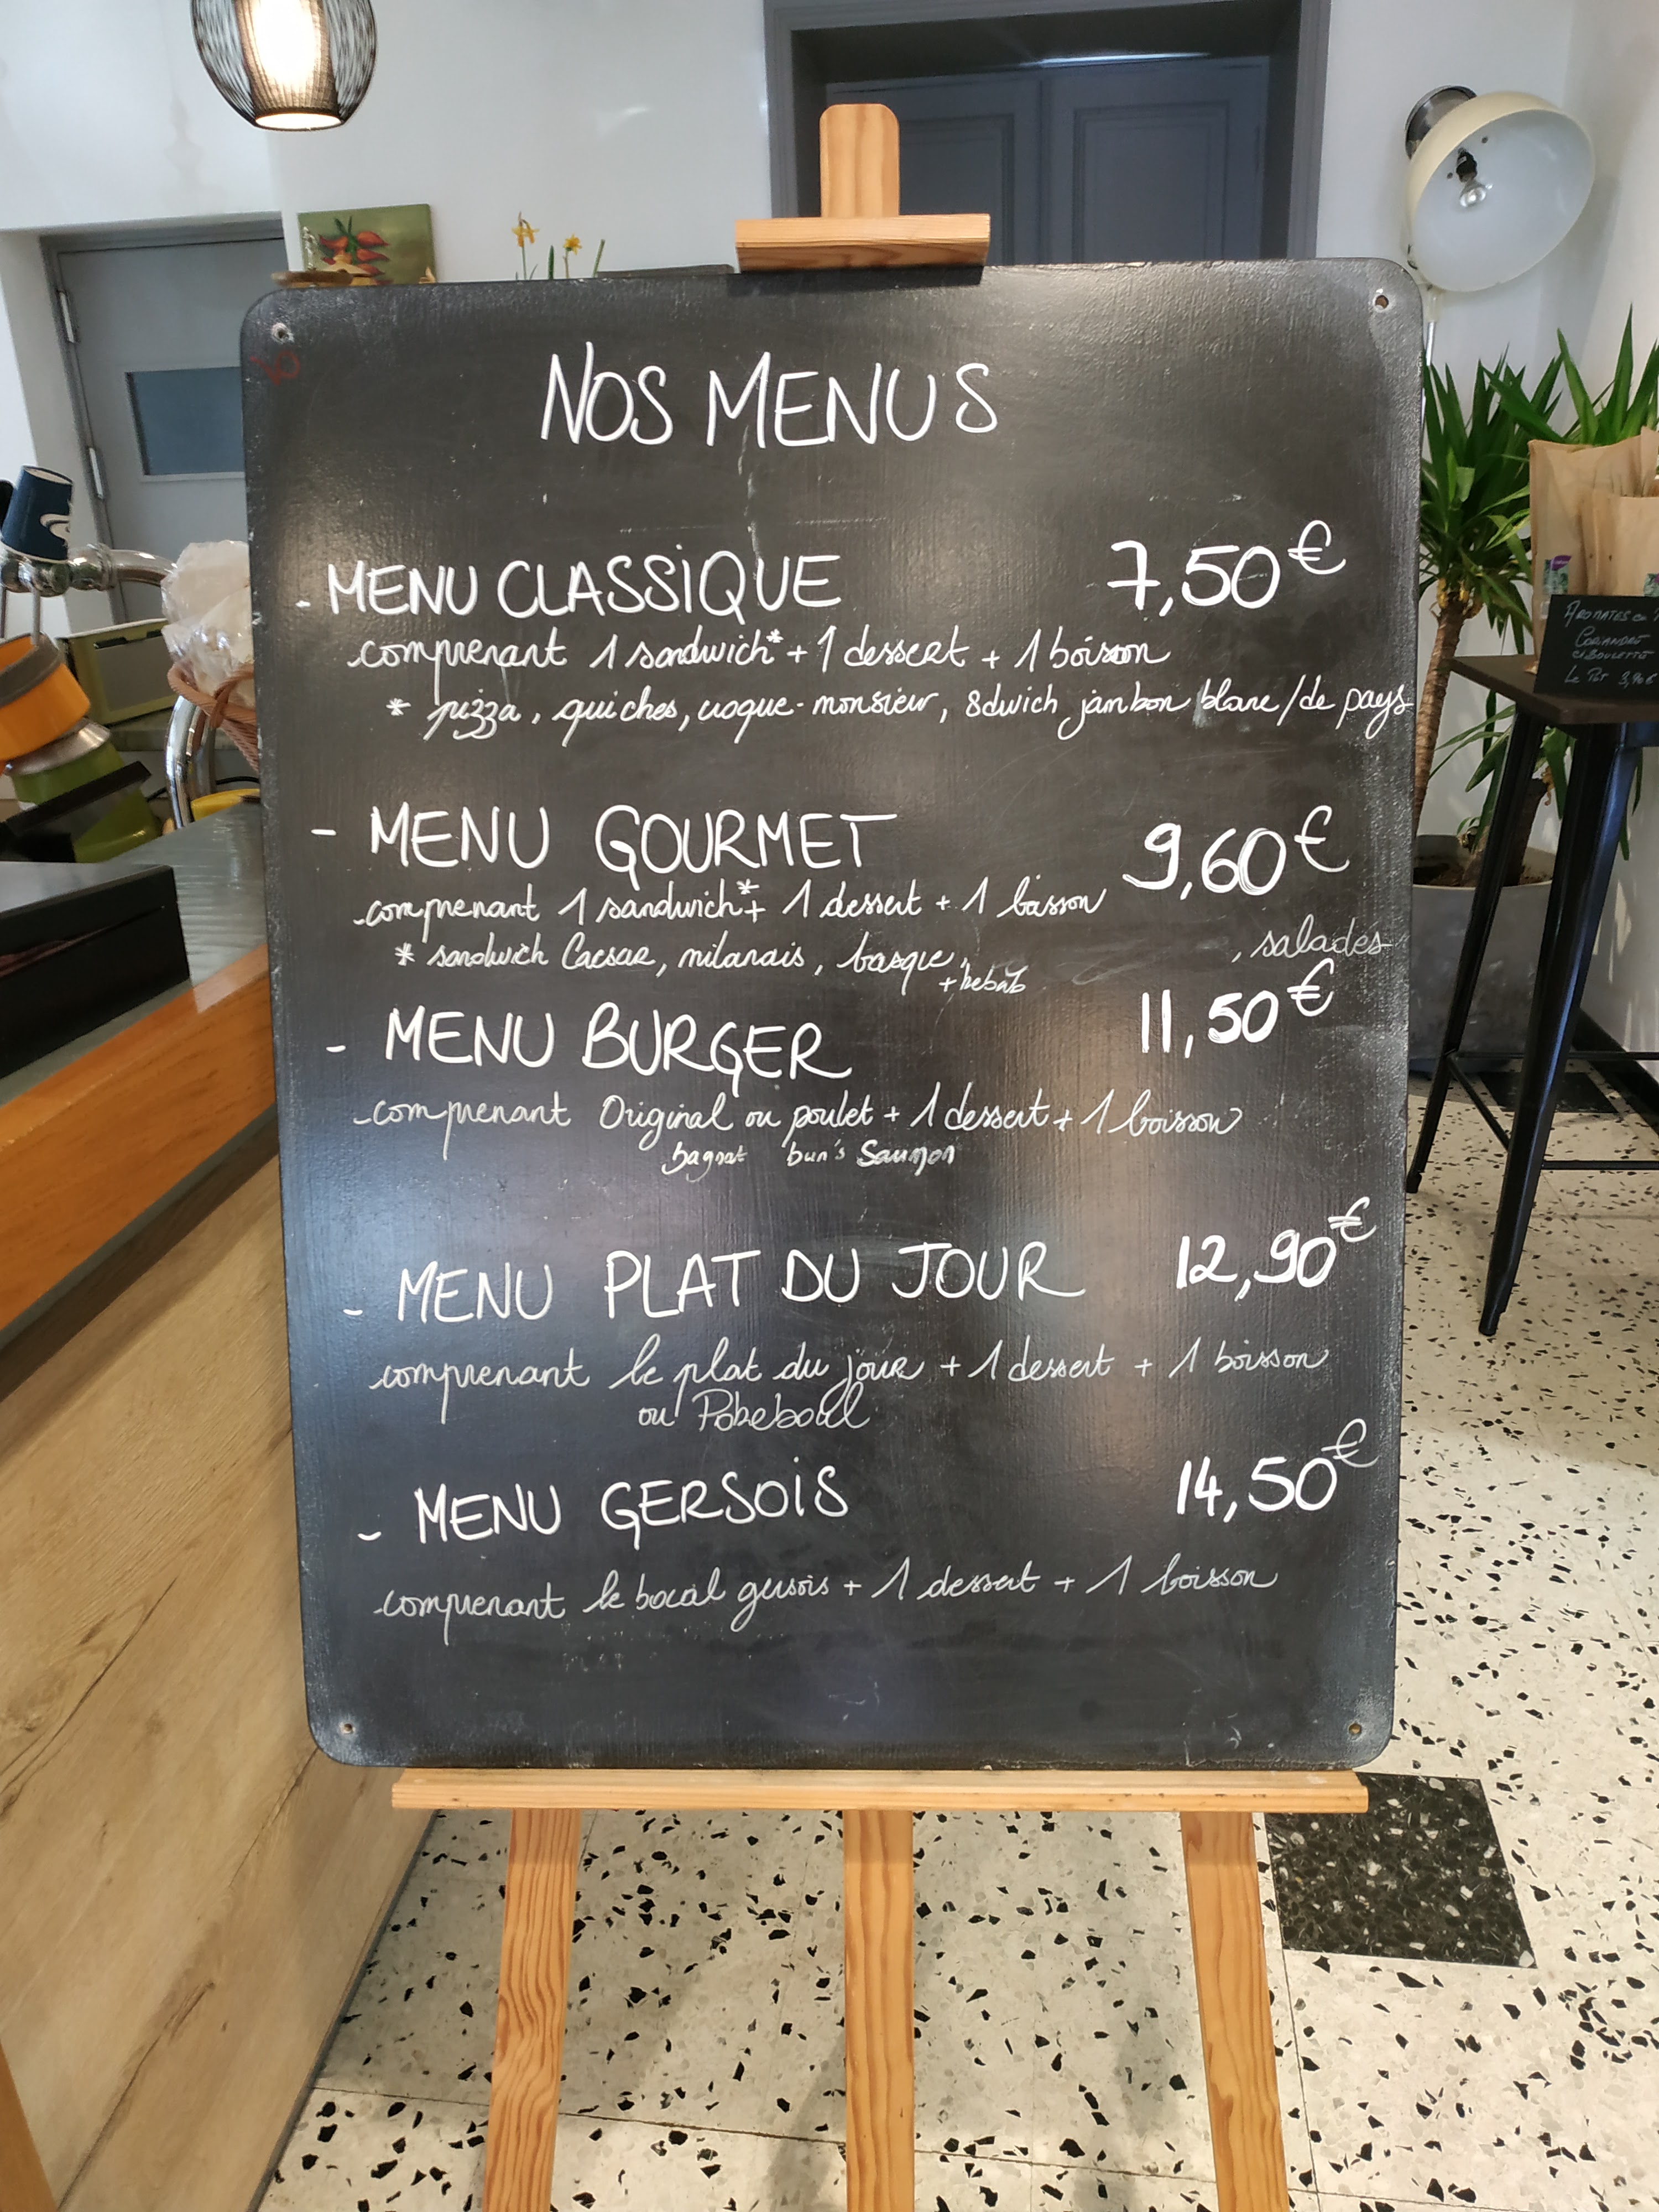 NOS MENUS
- MENU CLASSIQUE 7,50€
comprenant 1 sandwich* + 1 dessert + 1 boisson
* pizza, quiches, croque-monsieur, sdwich jambon blanc/de pays
- MENU GOURMET 9,60€
comprenant 1 sandwich* + 1 dessert + 1 boisson
* sandwich Caesar, milanais, basque, , salades
+ kebab
- MENU BURGER 11,50€
comprenant Original ou poulet + 1 dessert + 1 boisson
bagnat bun's Saumon
- MENU PLAT DU JOUR 12,90€
comprenant le plat du jour + 1 dessert + 1 boisson
ou PokeboWl
- MENU GERSOIS 14,50€
comprenant le bocal gersois + 1 dessert + 1 boisson
AROMATES
CORIANDRE
CIBOULETTE
Le Pot 3,90€